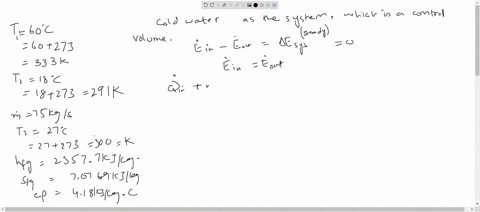 T₁ = 60°C
= 60 + 273
= 333 K
T₂ = 18°C
= 18 + 273 = 291 K
ṁ = 75 kg/s
T₃ = 27°C
= 27 + 273 = 300 = K
hfg = 2357.7 kJ/kg.
Sfg = 7.0769 kJ/kg
cp = 4.18 kJ/kg.C
Cold water as the system, which is a control
volume.
Ėin - Ėout = ΔĖsys (steady) = 0
Ėin = Ėout
Q̇in +